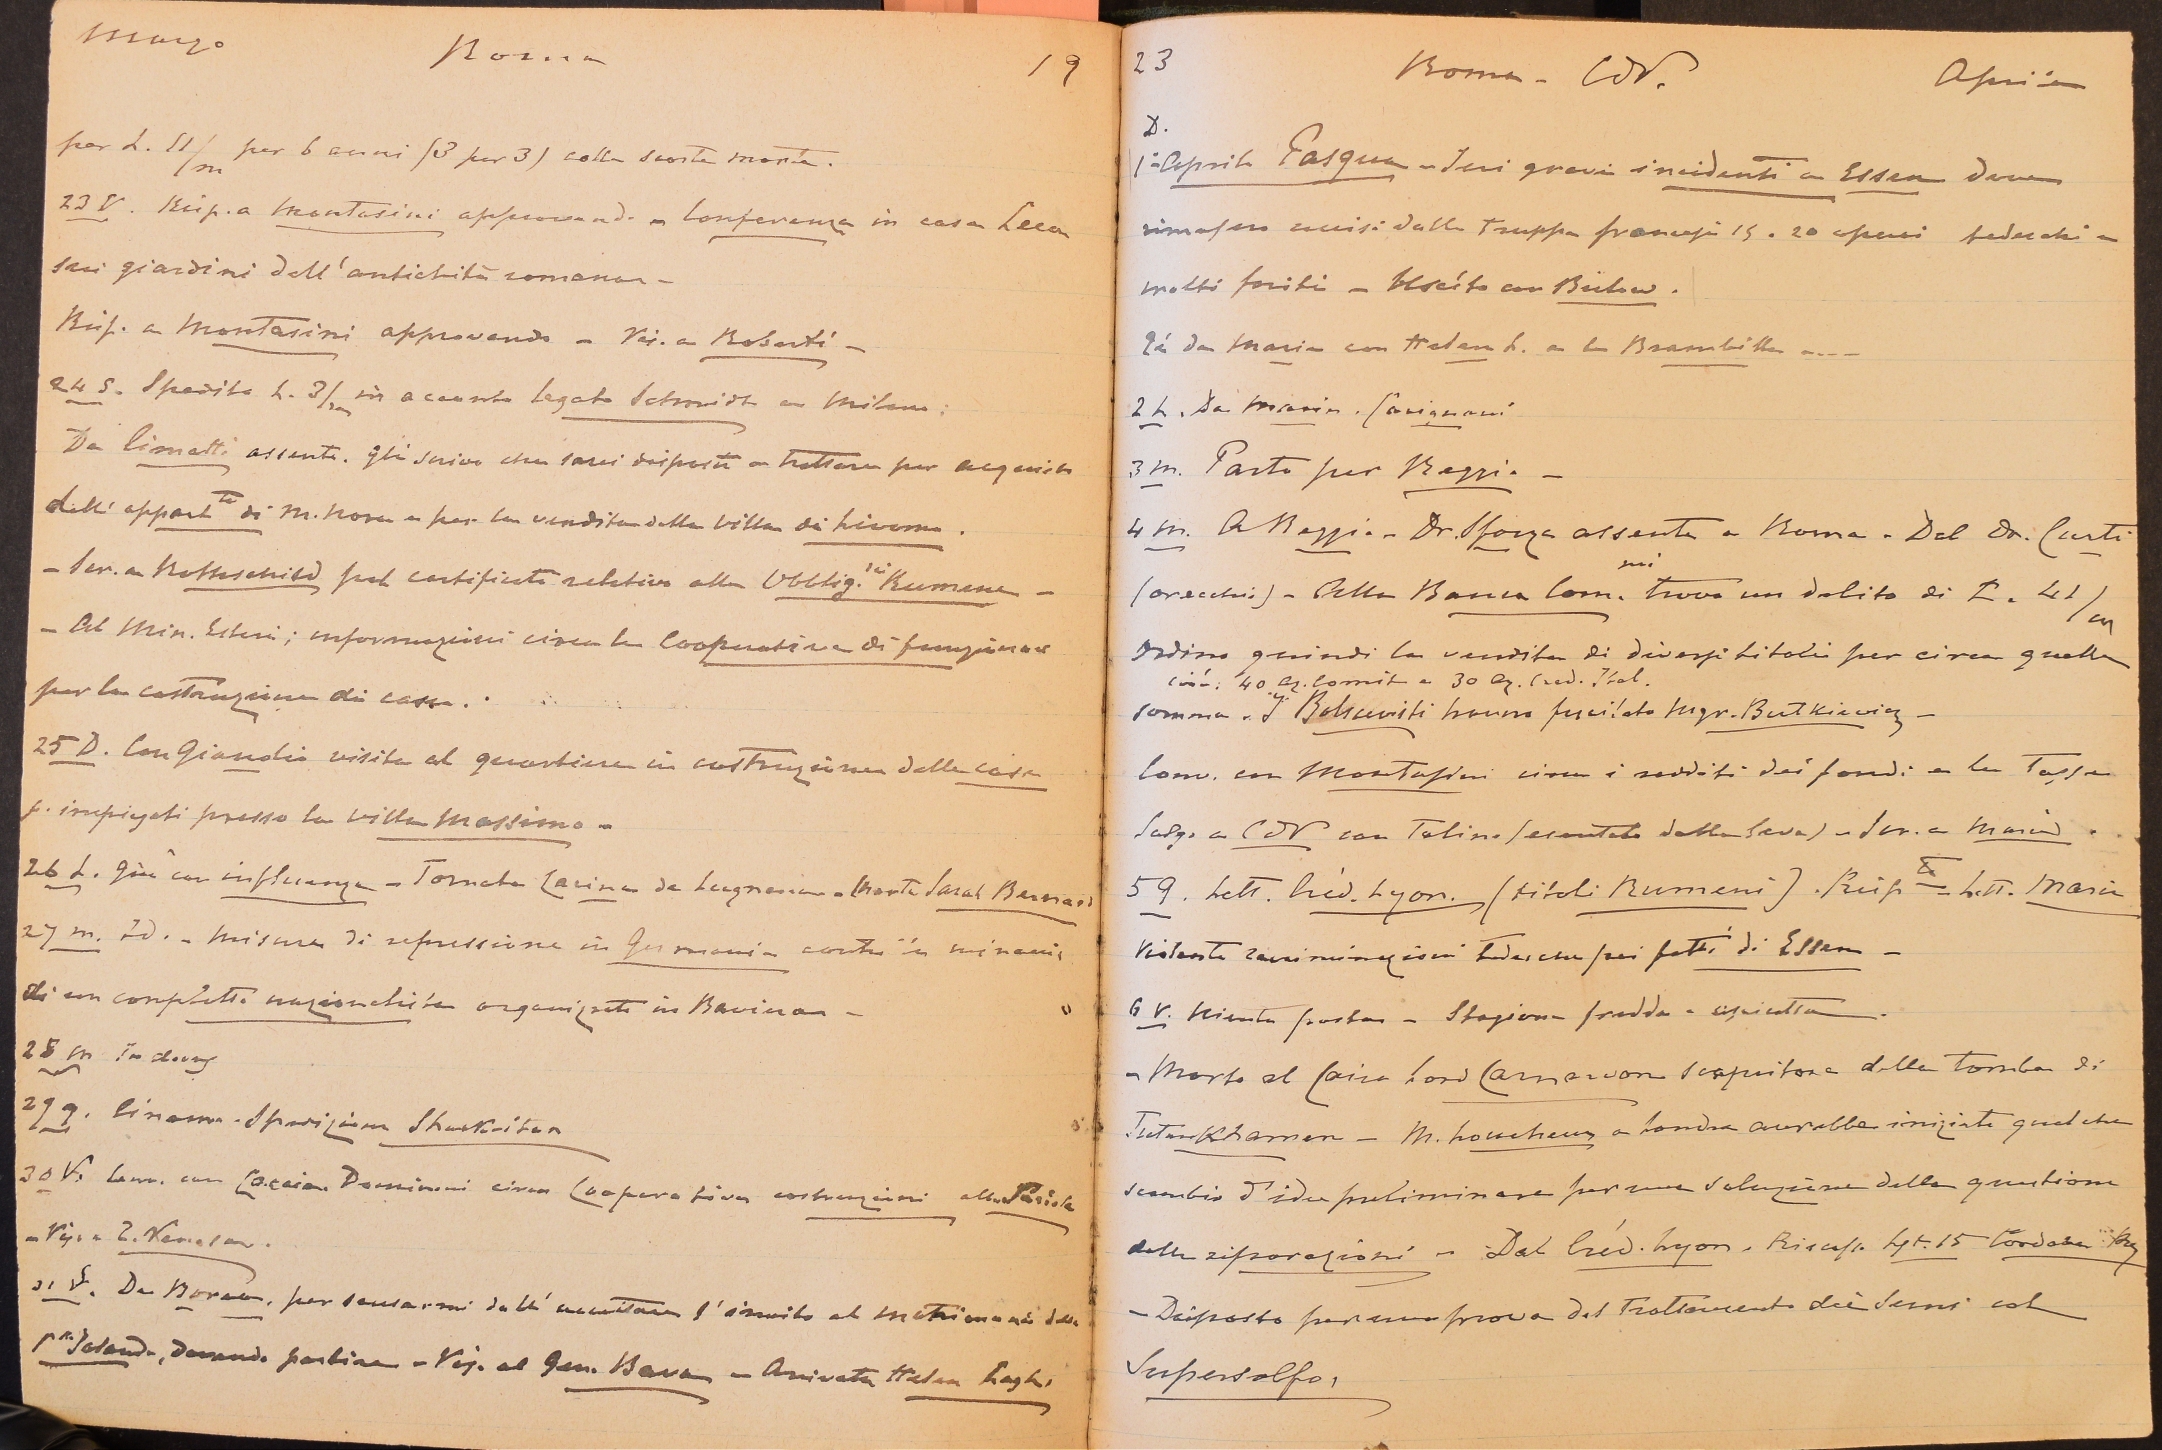 Marzo Roma 19
per L. 11/m per 6 anni (3 per 3) colle scorte morte.
23 V. Risp. a Montasini approvando - Conferenza in casa Lecca
sui giardini dell'antichità romana -
Risp. a Montasini approvando - Vis. a Roberti -
24 S. Spedito L. 3/m in acconto legato Schmidt a Milano;
Da Cimatti assente. Gli scrivo che sarei disposto a trattare per acquisto
dell' appart.to di M. Nova e per la vendita della Villa di Livorno.
- Scr. a Rothschild pel certificato relativo alle Obblig.ni Rumene -
- Al Min. Esteri; informazioni circa la Cooperativa di funzionari
per la costruzione di case.
25 D. Con Giandia visita al quartiere in costruzione delle case
p. impiegati presso la Villa Massimo -
26 L. Giù con influenza - Tornata Zarina da - Morta Sarah Bernard
27 M. Id. - Misure di repressione in Germania contro
di un complotto nazionalista organizzato in Baviera -
28 M
29 G. Cinema - Spedizione Shackleton
30 V. Conv. con Caccia Dominioni circa Cooperativa costruzioni alla
- Vis. a Z.
31 S. Da Borea, per scusarmi dell' accettare l'invito al matrimonio della
P.ssa Jolanda, dovendo partire - Vis. al Gen. Bava - Arrivata Helen
23 Roma - CdV. Aprile
D.
1° Aprile Pasqua - Ieri gravi incidenti a Essen dove
rimasero uccisi dalla truppa francese 15 o 20 operai tedeschi e
molti feriti - Uscito con Bülow.
Qi da Maria con Helen L. e la Brambilla ----
2 L. Da Maria.
3 M. Parto per Reggio -
4 M. A Reggio - Dr. Sforza assente a Roma - Dal Dr. Curti
(orecchio) - Alla Banca Com. mi trovo un debito di L. 41/m
Ordino quindi la vendita di diversi titoli per circa quella
cioè: 40 az. Comit e 30 az. Cred. Ital.
somma. I Bolscevisti hanno fucilato Mgr. Butkiewicz -
Conv. con Montasini circa i redditi dei fondi e la Tassa
Salgo a CdV con Tolino (esentato dalla leva) - Scr. a Maria.
5 G. Lett. Créd. Lyon. (titoli Rumeni). Risp. - Lett. Maria
Violente recriminazioni tedesche pei fatti di Essen -
6 V. Niente posta - Stagione fredda e asciutta.
- Morto al Cairo Lord Carnarvon scopritore della tomba di
Tutankhamen - M. Loucheur a Londra avrebbe iniziato qualche
scambio d'idee preliminare per una soluzione della questione
delle riparazioni - Dal Créd. Lyon.
- Disposto per una prova del trattamento dei semi col
Supersolfo,